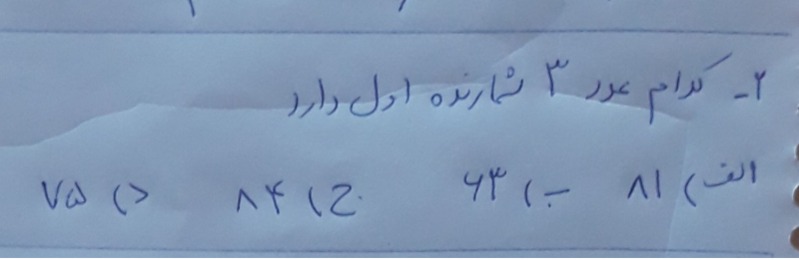 ۲- کدام عدد ۳ شمارنده اول دارد
الف) ۸۱ ب) ۶۳ ج) ۸۴ د) ۷۵